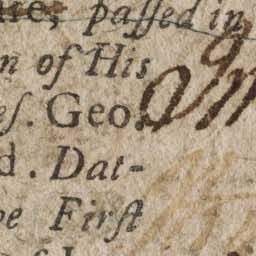 passed in
n of His
es. Geo.
d. Dat-
be First